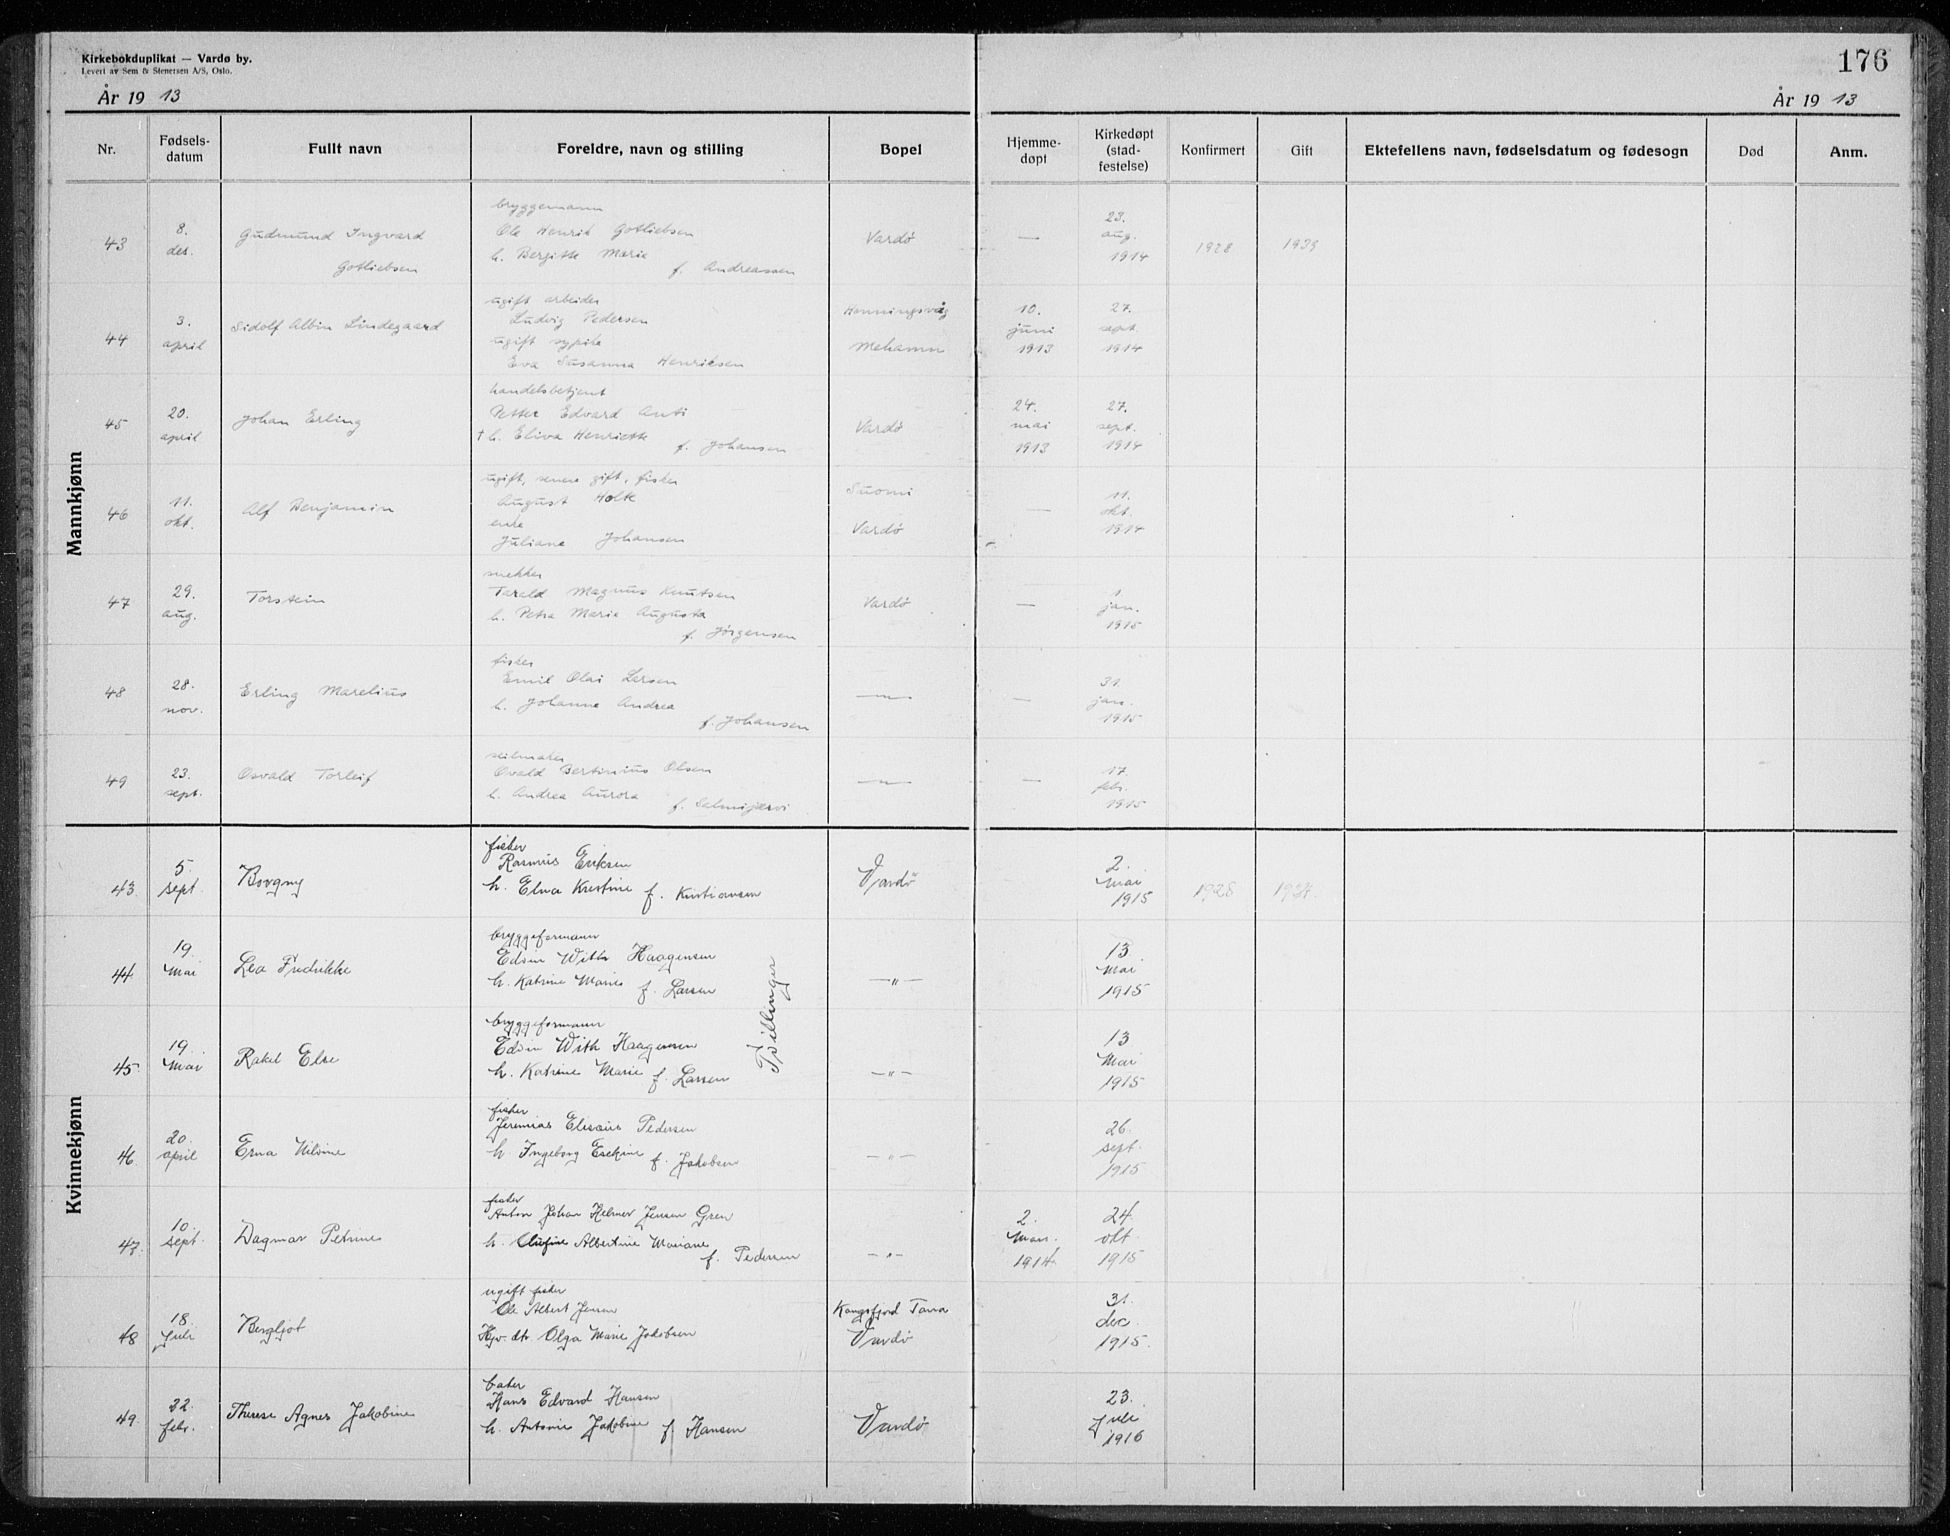 Kirkebokduplikat — Vardø by.
Levert av Sem & Stenersen A/S, Oslo.
176
År 19 13
År 19 13
Nr.
Fødsels-
datum
Fullt navn
Foreldre, navn og stilling
Bopel
Hjemme-
døpt
Kirkedøpt
(stad-
festelse)
Konfirmert
Gift
Ektefellens navn, fødselsdatum og fødesogn
Død
Anm.
Mannkjønn
43
8.
des.
Gudmund Ingvard
Gotliebsen
bryggemann
Ole Henrik Gotliebsen
h. Bergitte Marie
f. Andreassen
Vardø
—
23.
aug.
1914
1928
1939
44
3.
april
Sidolf Albin Lindegaard
ugift arbeider
Ludvig Pedersen
ugift sypike
Eva Susanna Henriksen
Honningsvåg
Mehamn
10.
juni
1913
27.
sept.
1914
45
20.
april
Johan Erling
handelsbetjent
Petter Edvard Anti
† h. Eliva Henriette
f. Johansen
Vardø
24.
mai
1913
27.
sept.
1914
46
11.
okt.
Alf Benjamin
ugift, senere gift, fisker
August Holte
enke
Juliane Johansen
Suomi
Vardø
—
11.
okt.
1914
47
29.
aug.
Torstein
snekker
Tarald Magnus Knutsen
h. Petra Marie Augusta
f. Jørgensen
Vardø
—
1.
jan.
1915
48
28.
nov.
Erling Marelius
fisker
Emil Olai Larsen
h. Johanne Andrea
f. Johansen
—"—
—
31.
jan.
1915
49
23.
sept.
Osvald Torleif
seilmaker
Ovald Bertinius Olsen
h. Andrea Aurora
f. Salmijærvi
—"—
—
17.
febr.
1915
Kvinnekjønn
43.
5.
sept.
Borgny
fisker
Rasmus Eriksen
h. Elna Kristine f. Kristiansen
Vardø
2.
Mai
1915
1928
1937.
44.
19.
Mai
Lea Fredrikke
bryggeformann
Edvin With Haagensen
h. Katrine Marie f. Larsen
—"—
13.
Mai
1915
Tvillinger
45.
19.
Mai
Rakel Else
bryggeformann
Edvin With Haagensen
h. Katrine Marie f. Larsen
—"—
13
Mai
1915
46.
20.
april
Erna Nilvine
fisker
Jeremias Elisæus Pedersen
h Ingeborg Eserine f. Jakobsen
—"—
26.
sept.
1915
47.
10.
sept.
Dagmar Petrine
fisker
Anton Johan Helmer Jensen Gren
h. Olufine Albertine Mariane
f. Pedersen
—"—
2.
Mars.
1914.
24.
okt.
1915
48
18.
Juli
Bergljot
ugift fisker
Ole Albert Jensen
Hjv. dtr Olga Marie Jakobsen
Kongsfjord Tana
Vardø
31.
dec.
1915.
49.
22.
febr.
Therese Agnes Jakobine
baker
Hans Edvard Hansen
h. Antonie Jakobine f Hansen
Vardø
23.
Juli
1916